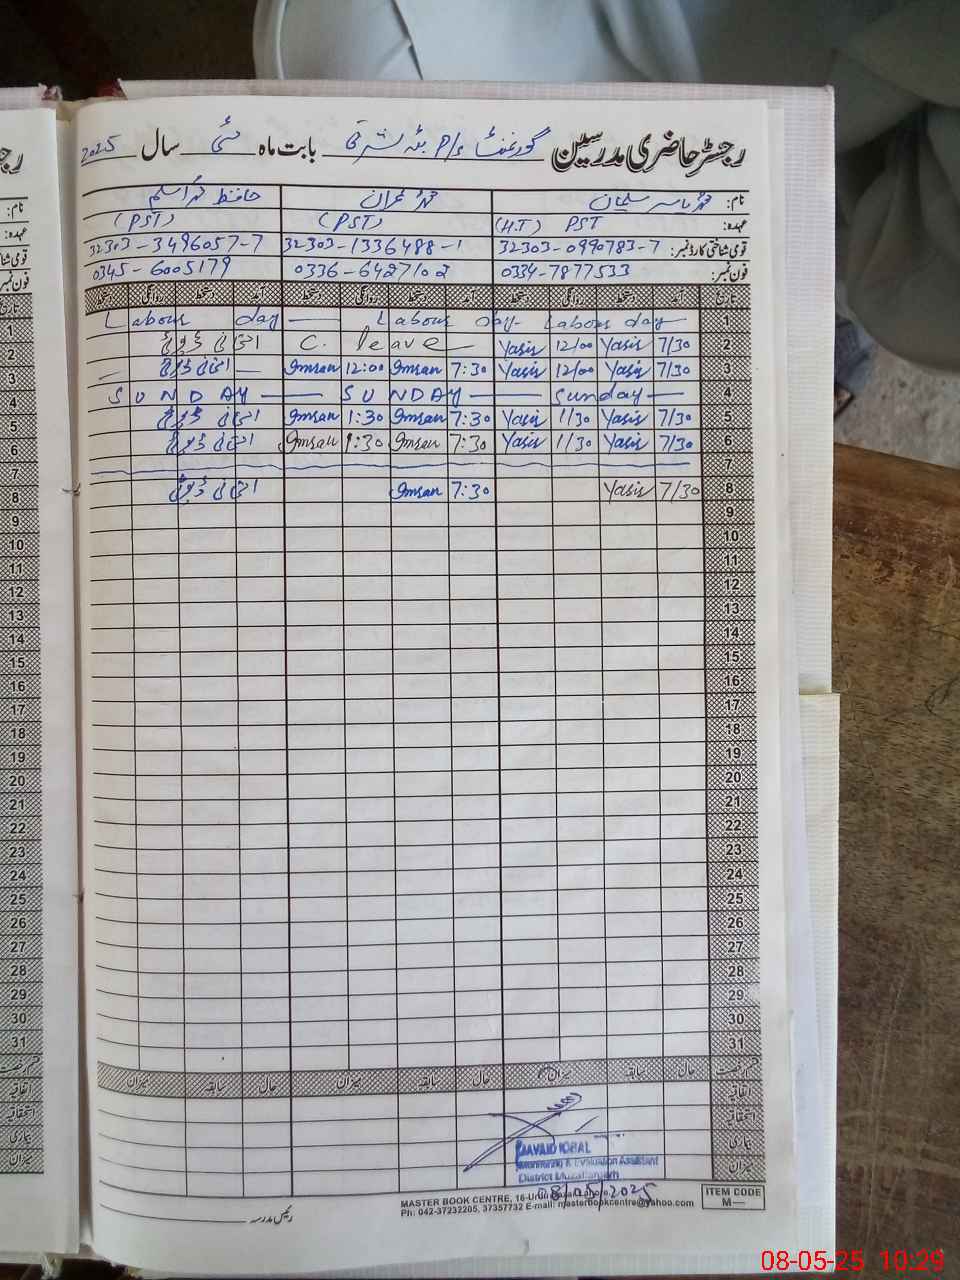 رجسٹر حاضری مدرسین گورنمنٹ P/s بٹہ شرقی بابت ماہ مئی سال 2025
نام: محمد یاسر سلیمان محمد عمران حافظ محمد اسلم
عہدہ: (H.T) PST (PST) (PST)
قومی شناختی کارڈ نمبر: 32303-0990783-7 32303-1336488-1 32303-3496057-7
فون نمبر: 0334-7877533 0336-6428710 0345-6005179
تاریخ آمد دستخط روانگی دستخط آمد دستخط روانگی دستخط آمد دستخط روانگی دستخط
1 Labour day Labour Day Labour day
2 7/30 Yasir 12/00 Yasir C. leave
3 7/30 Yasir 12/00 Yasir 7:30 Imran 12:00 Imran
4 Sunday SUNDAY SUNDAY
5 7/30 Yasir 1/30 Yasir 7:30 Imran 1:30 Imran
6 7/30 Yasir 1/30 Yasir 7:30 Imran 1:30 Imran
7
8 7/30 Yasir 7:30 Imran
9
10
11
12
13
14
15
16
17
18
19
20
21
22
23
24
25
26
27
28
29
30
31
حال سابقہ میزان حال سابقہ میزان حال سابقہ میزان
اتفاقیہ
استحقاقیہ
بیماری
میزان
JAVAID IQBAL
Monitoring & Evaluation Assistant
District Muzaffargarh
08/05/2025
MASTER BOOK CENTRE, 16-Urdu Bazar Lahore.
Ph: 042-37232205, 37357732 E-mail: masterbookcentre@yahoo.com
ITEM CODE
M—
رئیس مدرسہ
08-05-25 10:29